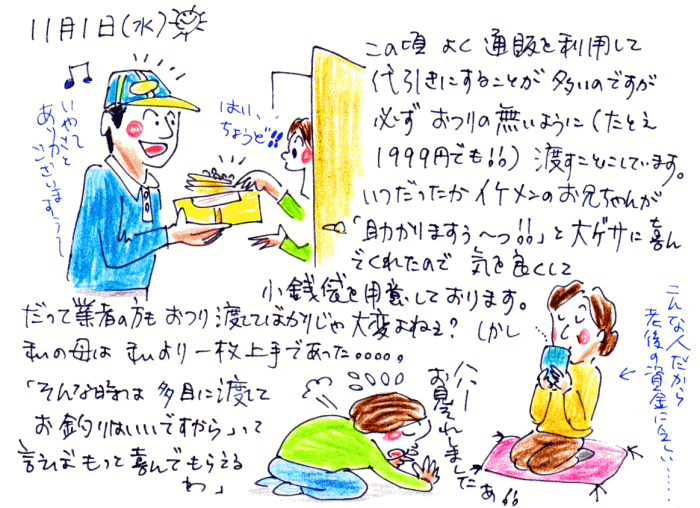 11月1日(水)
この頃 よく 通販を利用して
代引きにすることが 多いのですが
必ず おつりの無いように(たとえ
1999円でも!!)渡すことにしています。
いつだったか イケメンのお兄ちゃんが
「助かりますぅ〜っ!!」と大ゲサに喜ん
でくれたので 気を良くして
小銭袋を用意しております。
だって業者の方も おつり渡してばかりじゃ 大変よねぇ? しかし
私の母は 私より一枚上手であった。。。。。
「そんな時は 多目に渡して
お釣りはいいですから」って
言えば もっと喜んでもらえる
わ」
はい、
ちょうど!!
ありがとう
ございますぅ〜
ハハー
お見それしました
ぁ!!
こんな人だから
老後の資金に乏しい……